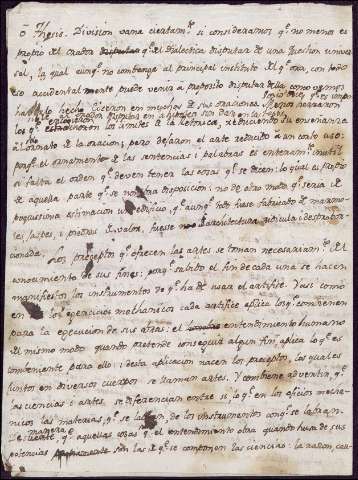 ó Thesis. Division vana ciertam.te si consideramos q.e no menos es
propio del orador disputar q.e del dialectico disputar de una question univer
sal, la qual aunq.e no combenga al principal instituto del q.e ora, con todo
eso accidentalmente puede venir a proposito disputar della como vemos
haverlo hecho Ciceron en muchos de sus oraciones.
los q.e estrecharon los limites a la Retorica, reduciendo su enseñanza
al ornato de la oracion; pero dejaron el arte reducido a un corto uso:
porq.e el ornamento de las sentencias i palabras es enteram.te inutil
si falta el orden q.e deven tener las cosas q.e se dicen: lo qual es propio
de aquella parte q.e se nombra disposicion: no de otro modo q.e seria de
poquissima estimacion un edificio, q.e aunq.e todo fuese fabricado de marmo
les, jaspes, i piedras de valor, fuese de architectura ridicula i desproporcionada.
Los preceptos q.e ofrecen las artes se toman necesariam.te del
conocimiento de sus fines; porq.e sabido el fin de cada una se hacen
manifiestos los instrumentos de q.e ha de usar el artifice. Y asi como
en los exercicios mechanicos cada artifice aplica lo q.e combiene
para la execucion de sus obras: el entendimiento humano
del mismo modo quando pretende conseguir algun fin, aplica lo q.e es
combeniente para ello: i desta aplicacion nacen los preceptos, los quales
juntos en diversos cuerpos se llaman artes. Y combiene advertir, q.e
las ciencias i artes, se diferencian entre si, lo q.e en los oficios mecha
nicos las materias, q.e se labran, de los instrumentos con q.e se labran.
De manera q.e aquellas cosas q.e el entendimiento obra quando husa de sus
potencias son las q.e se componen las ciencias: la razon,